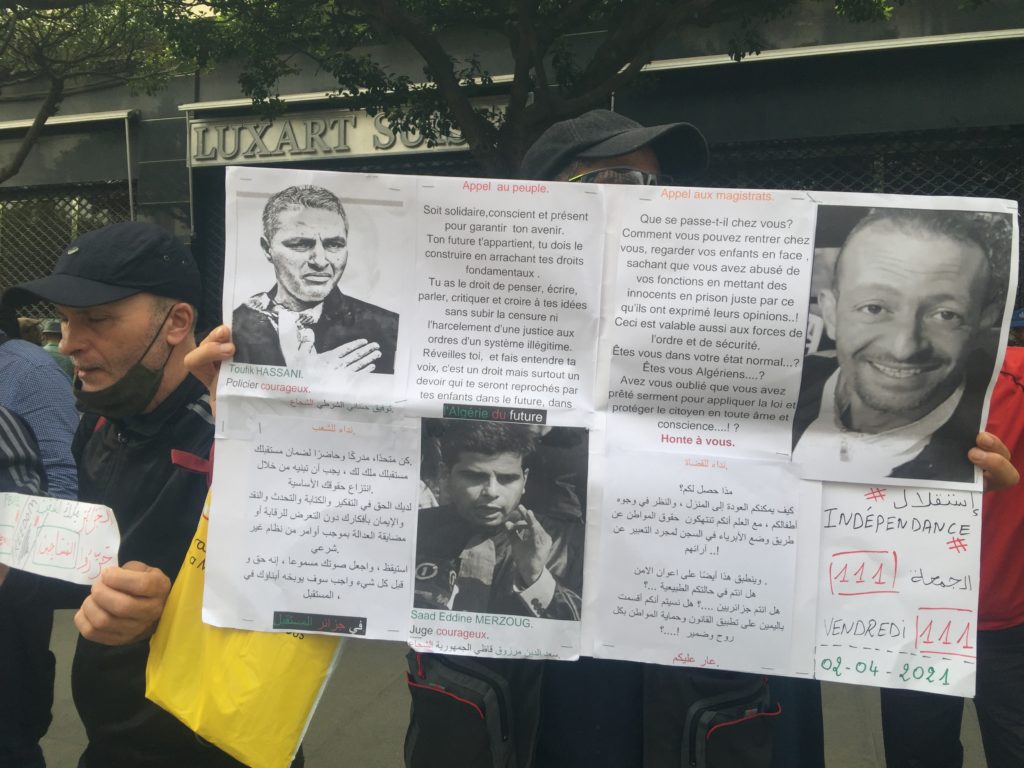 LUXART SUIS
Appel au peuple.
Soit solidaire,conscient et présent
pour garantir ton avenir.
Ton future t'appartient, tu dois le
construire en arrachant tes droits
fondamentaux .
Tu as le droit de penser, écrire,
parler, critiquer et croire à tes idées
sans subir la censure ni
l'harcelement d'une justice aux
ordres d'un système illégitime.
Réveilles toi, et fais entendre ta
voix, c'est un droit mais surtout un
devoir qui te seront reprochés par
tes enfants dans le future, dans
l'Algérie du future
Toufik HASSANI.
Policier courageux.
توفيق حساني الشرطي الشجاع.
Appel aux magistrats.
Que se passe-t-il chez vous?
Comment vous pouvez rentrer chez
vous, regarder vos enfants en face ,
sachant que vous avez abusé de
vos fonctions en mettant des
innocents en prison juste par ce
qu'ils ont exprimé leurs opinions..!
Ceci est valable aussi aux forces de
l'ordre et de sécurité.
Êtes vous dans votre état normal....?
Êtes vous Algériens....?
Avez vous oublié que vous avez
prêté serment pour appliquer la loi et
protéger le citoyen en toute âme et
conscience....! ?
Honte à vous.
نداء للشعب.
كن متحدًا، مدركًا وحاضرًا لضمان مستقبلك.
مستقبلك ملك لك ، يجب أن تبنيه من خلال
انتزاع حقوقك الأساسية.
لديك الحق في التفكير والكتابة والتحدث والنقد
والإيمان بأفكارك دون التعرض للرقابة أو
مضايقة العدالة بموجب أوامر من نظام غير
شرعي.
استيقظ ، واجعل صوتك مسموعا ، إنه حق و
قبل كل شيء واجب سوف يوبخه أبناؤك في
المستقبل ،
في جزائر المستقبل
Saad Eddine MERZOUG.
Juge courageux.
سعد الدين مرزوق قاضي الجمهورية الشجاع.
نداء للقضاة.
ماذا حصل لكم؟
كيف يمكنكم العودة إلى المنزل ، والنظر في وجوه
أطفالكم ، مع العلم أنكم تنتهكون حقوق المواطن عن
طريق وضع الأبرياء في السجن لمجرد التعبير عن
آرائهم ..!
وينطبق هذا أيضًا على اعوان الامن .
هل انتم في حالتكم الطبيعية ...؟
هل انتم جزائريين ....؟ هل نسيتم أنكم أقسمت
باليمين على تطبيق القانون وحماية المواطن بكل
روح وضمير !....؟
عار عليكم.
# إستقلال
INDÉPENDANCE
#
الجمعة 111
VENDREDI 111
02-04-2021